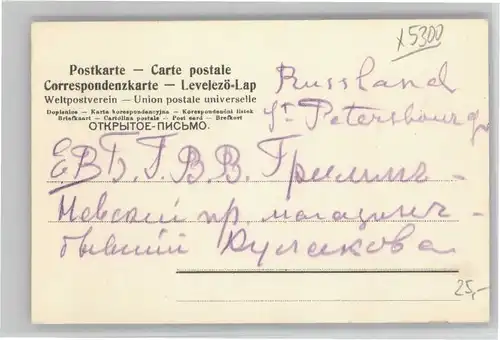 x5300
Postkarte — Carte postale
Correspondenzkarte — Levelező-Lap
Weltpostverein — Union postale universelle
Dopisnice — Karta korespondencyjna — Korespondenční lístek
Briefkaart — Cartolina postale — Post card — Brefkort
ОТКРЫТОЕ-ПИСЬМО.
Russland
St Petersbourg
ЕВБ. Г. В. В. Грилинг
Невский пр. магазин
бывший Кулакова
25,-